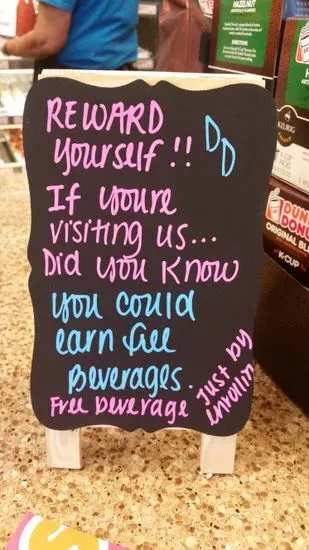 REWARD
yourself!!
DD
If youre
visiting us...
Did you Know
you could
earn free
Beverages.
Free Beverage
Just by
enrollin
HAZELNUT
ARTIFICIALLY FLAVORED
DIRECTIONS
KEURIG
DUNK
DONU
ORIGINAL BL
K-CUP